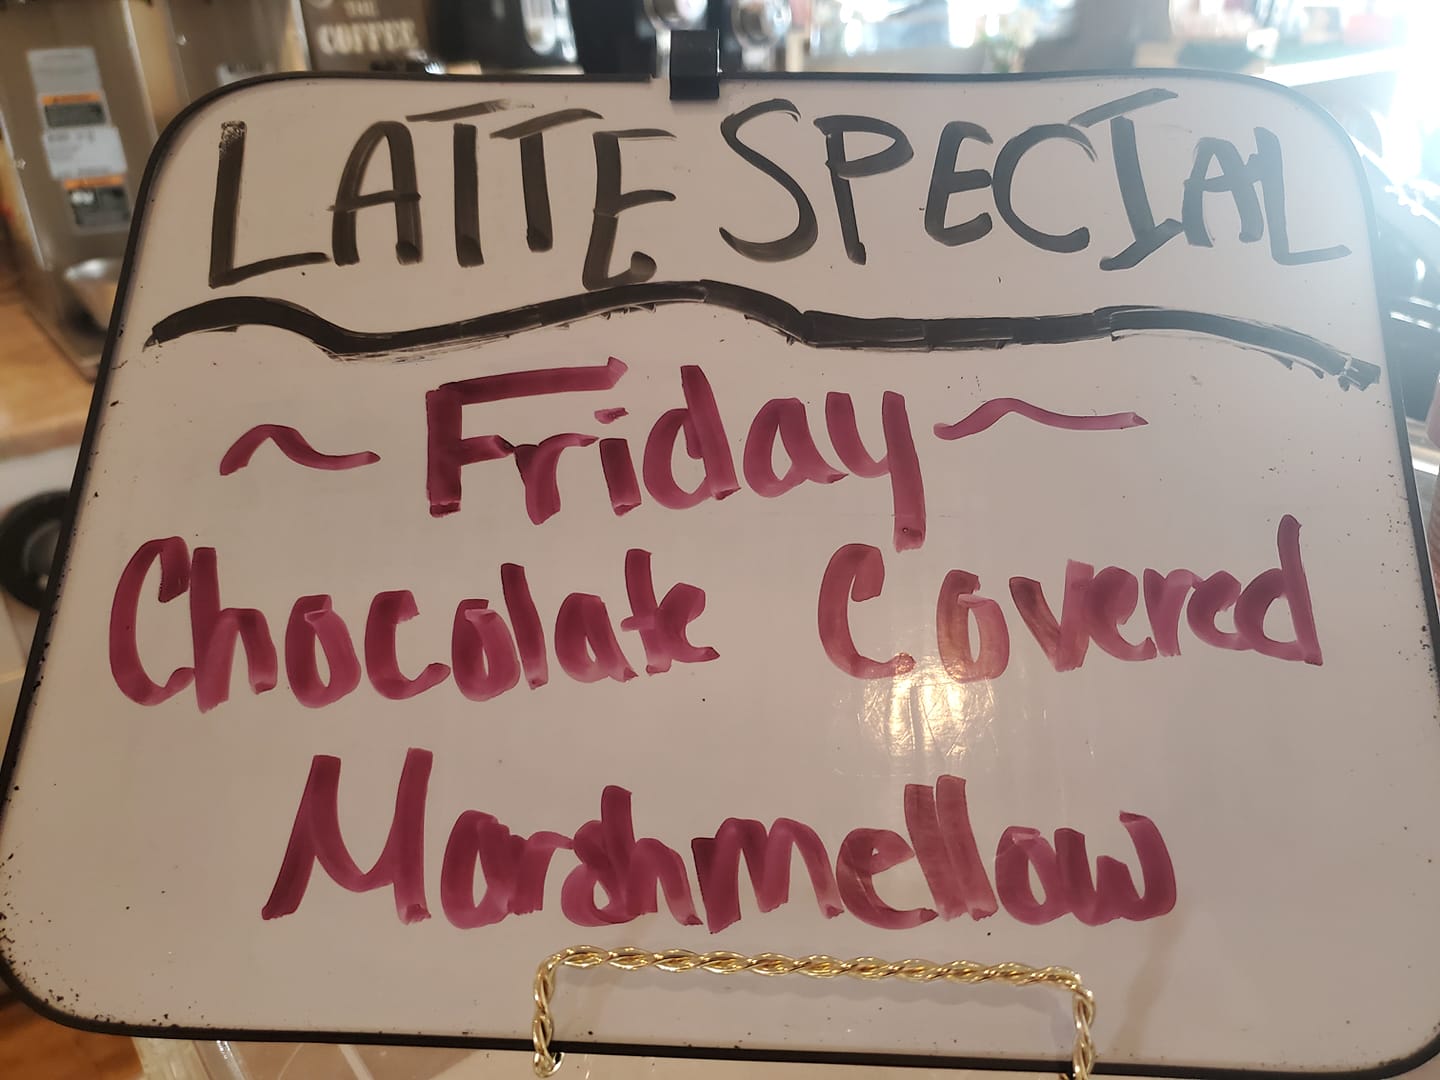 THE
COFFEE
LATTE SPECIAL
~ Friday ~
Chocolate Covered
Marshmellow